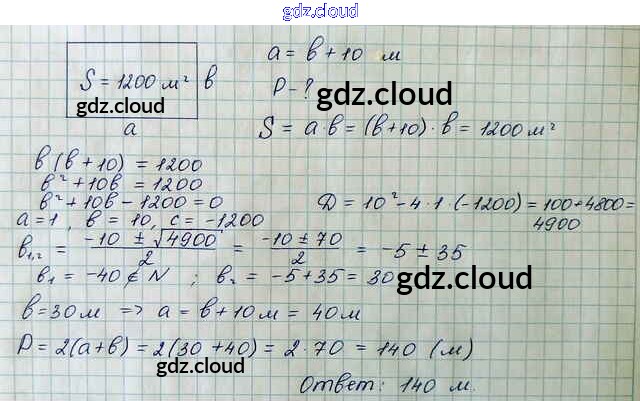 gdz.cloud
a = в + 10 м
S = 1200 м² в
gdz.cloud
P - ?
gdz.cloud
a
S = a·в = (в+10)·в = 1200 м²
в(в+10) = 1200
в² + 10в = 1200
в² + 10в - 1200 = 0
Д = 10² - 4·1·(-1200) = 100 + 4800 =
4900
a = 1, в = 10, c = -1200
в₁,₂ = (-10 ± √4900)/2 = (-10 ± 70)/2 = -5 ± 35
в₁ = -40 ∉ N ; в₂ = -5 + 35 = 30
gdz.cloud
в = 30 м => a = в + 10 м = 40 м
P = 2(a+в) = 2(30+40) = 2·70 = 140 (м)
gdz.cloud
Ответ: 140 м.